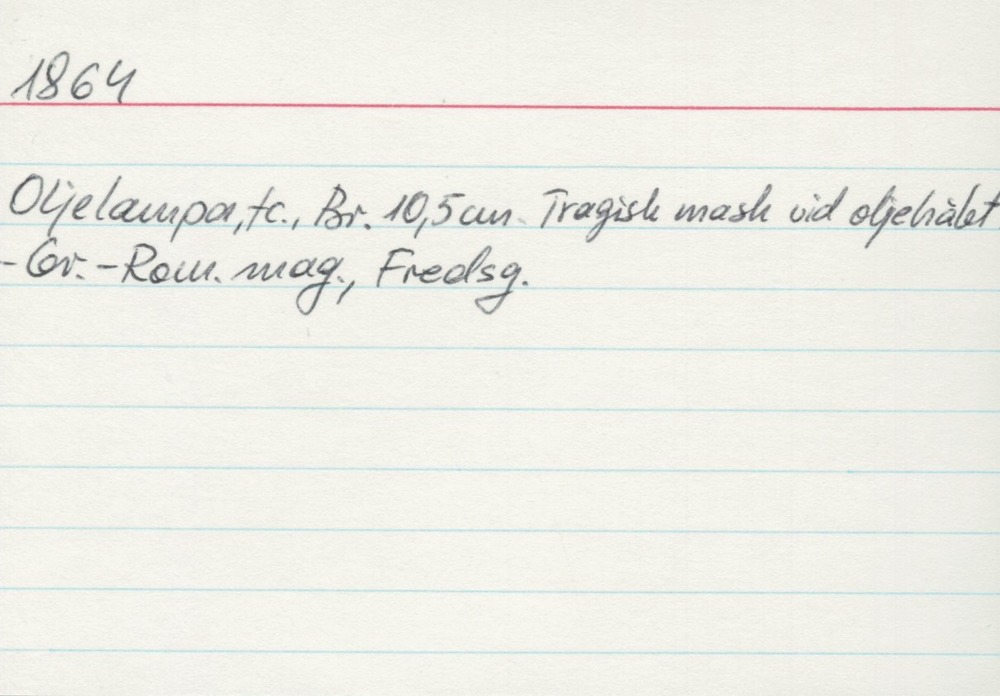 1864
Oljelampa, tc., Br. 10,5 cm. Tragisk mask vid oljehålet.
-Gr.-Rom. mag., Fredsg.